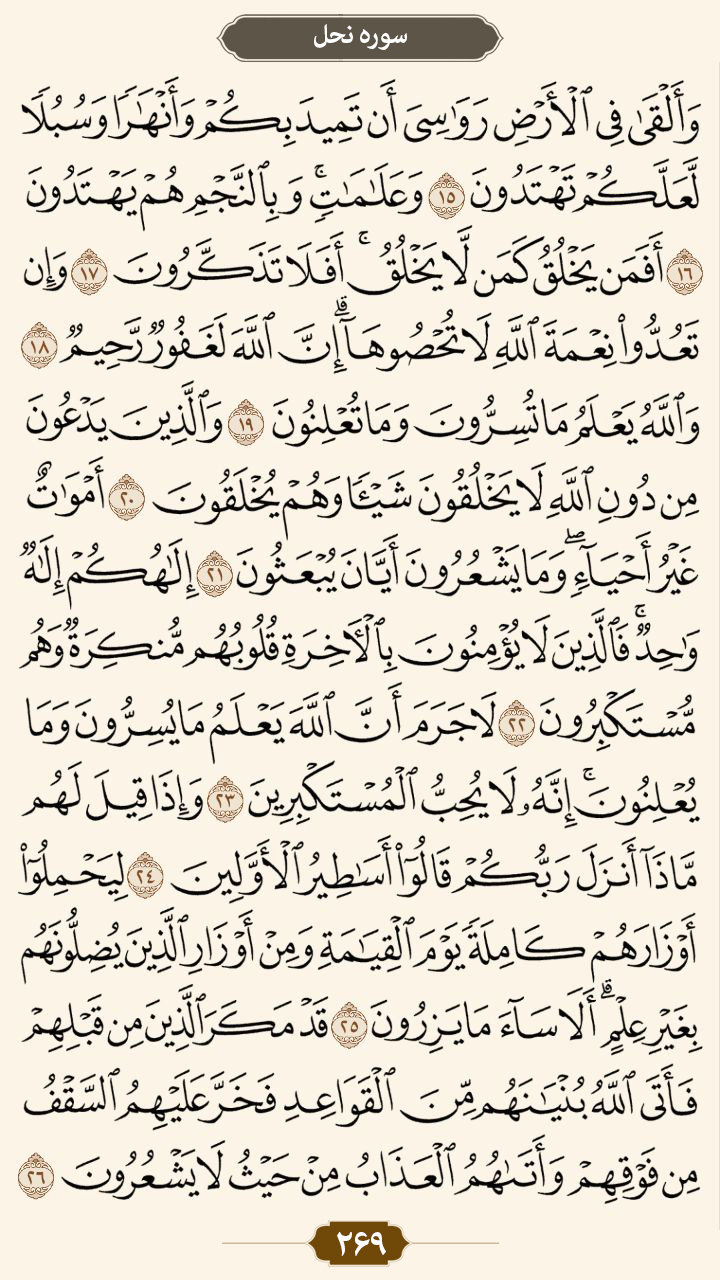 سوره نحل
وَأَلْقَىٰ فِى ٱلْأَرْضِ رَوَٰسِىَ أَن تَمِيدَ بِكُمْ وَأَنْهَٰرًا وَسُبُلًا
لَّعَلَّكُمْ تَهْتَدُونَ ١٥ وَعَلَٰمَٰتٍ ۚ وَبِٱلنَّجْمِ هُمْ يَهْتَدُونَ
١٦ أَفَمَن يَخْلُقُ كَمَن لَّا يَخْلُقُ ۚ أَفَلَا تَذَكَّرُونَ ١٧ وَإِن
تَعُدُّوا۟ نِعْمَةَ ٱللَّهِ لَا تُحْصُوهَآ ۗ إِنَّ ٱللَّهَ لَغَفُورٌ رَّحِيمٌ ١٨
وَٱللَّهُ يَعْلَمُ مَا تُسِرُّونَ وَمَا تُعْلِنُونَ ١٩ وَٱلَّذِينَ يَدْعُونَ
مِن دُونِ ٱللَّهِ لَا يَخْلُقُونَ شَيْـًٔا وَهُمْ يُخْلَقُونَ ٢٠ أَمْوَٰتٌ
غَيْرُ أَحْيَآءٍ ۖ وَمَا يَشْعُرُونَ أَيَّانَ يُبْعَثُونَ ٢١ إِلَٰهُكُمْ إِلَٰهٌ
وَٰحِدٌ ۚ فَٱلَّذِينَ لَا يُؤْمِنُونَ بِٱلْـَٔاخِرَةِ قُلُوبُهُم مُّنكِرَةٌ وَهُم
مُّسْتَكْبِرُونَ ٢٢ لَا جَرَمَ أَنَّ ٱللَّهَ يَعْلَمُ مَا يُسِرُّونَ وَمَا
يُعْلِنُونَ ۚ إِنَّهُۥ لَا يُحِبُّ ٱلْمُسْتَكْبِرِينَ ٢٣ وَإِذَا قِيلَ لَهُم
مَّاذَآ أَنزَلَ رَبُّكُمْ قَالُوٓا۟ أَسَٰطِيرُ ٱلْأَوَّلِينَ ٢٤ لِيَحْمِلُوٓا۟
أَوْزَارَهُمْ كَامِلَةً يَوْمَ ٱلْقِيَٰمَةِ وَمِنْ أَوْزَارِ ٱلَّذِينَ يُضِلُّونَهُم
بِغَيْرِ عِلْمٍ ۗ أَلَا سَآءَ مَا يَزِرُونَ ٢٥ قَدْ مَكَرَ ٱلَّذِينَ مِن قَبْلِهِمْ
فَأَتَى ٱللَّهُ بُنْيَٰنَهُم مِّنَ ٱلْقَوَاعِدِ فَخَرَّ عَلَيْهِمُ ٱلسَّقْفُ
مِن فَوْقِهِمْ وَأَتَىٰهُمُ ٱلْعَذَابُ مِنْ حَيْثُ لَا يَشْعُرُونَ ٢٦
۲۶۹